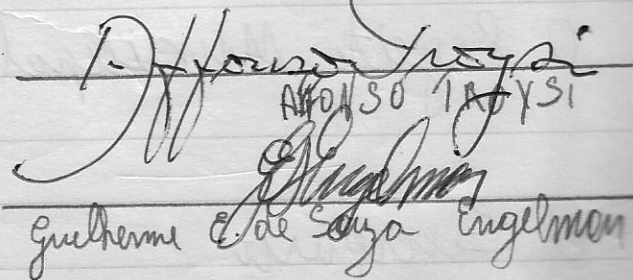 Affonso Troysi
AFFONSO TROYSI
Engelman
Guilherme E. de Souza Engelman